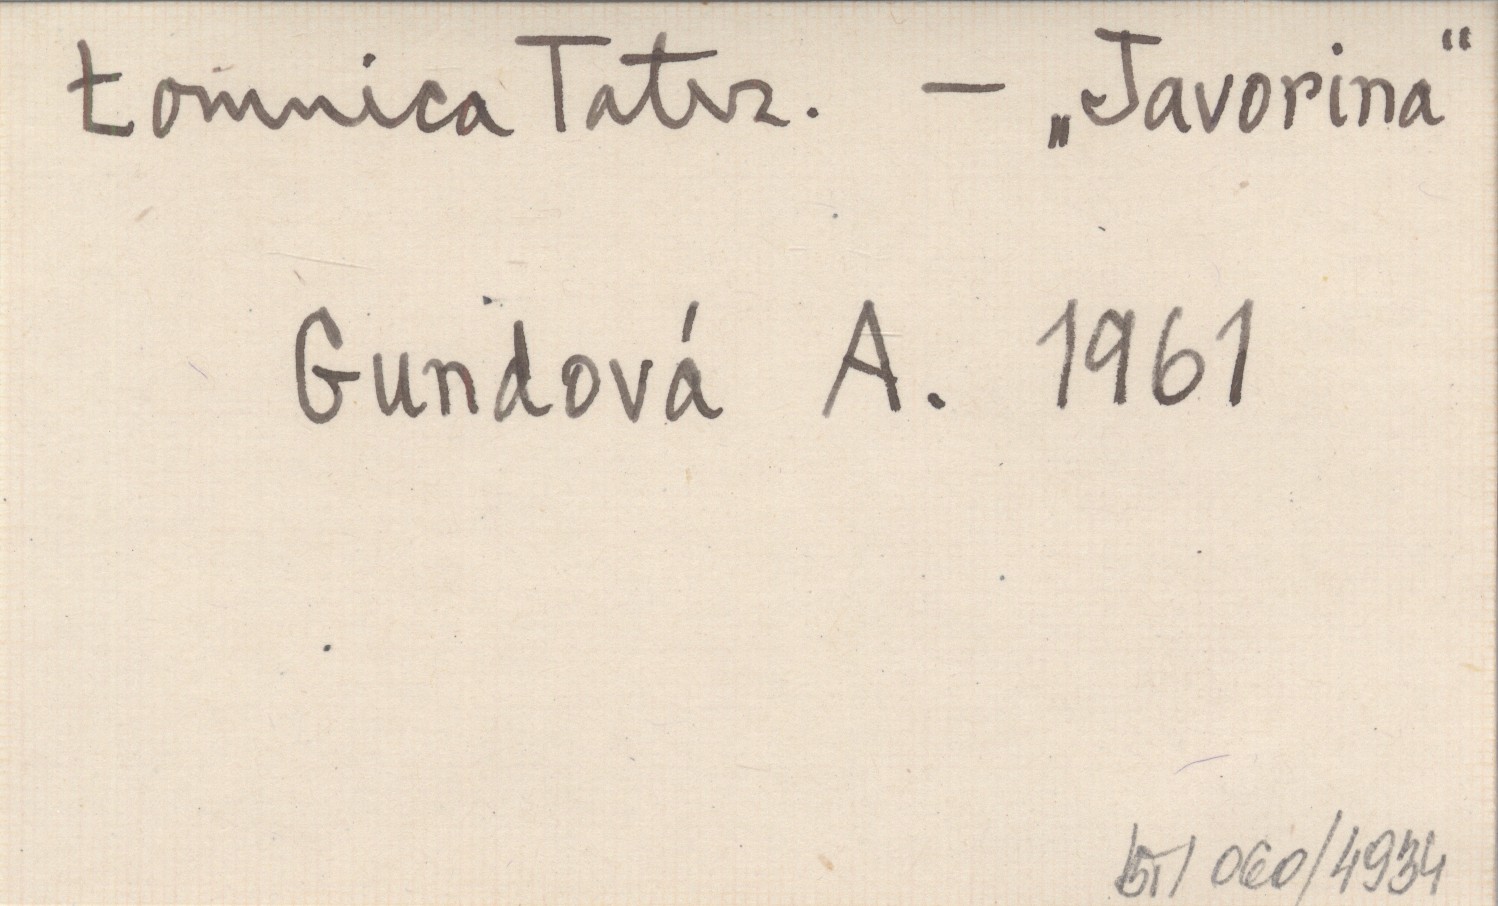 Łomnica Tatrz. – „Javorina“
Gundová A. 1961
060/4934